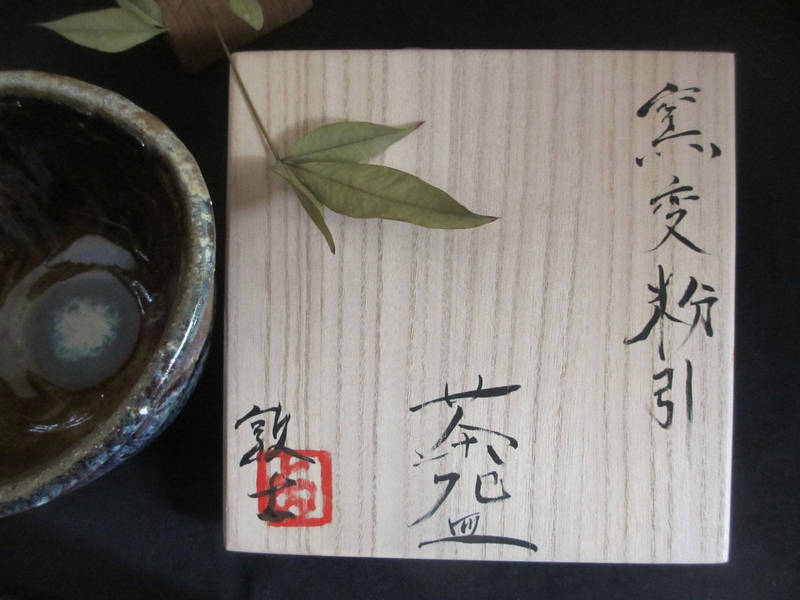 窯変粉引
茶盌
敦士